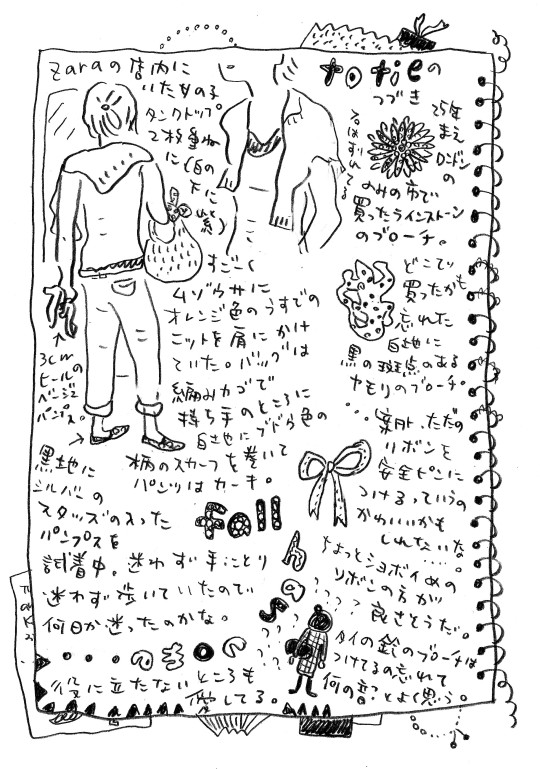 zaraの店内に
いた女の子
タンクトップ
2枚重ね
に(白の
下に
紫)
すごく
ムゾウサに
オレンジ色のうすでの
ニットを肩にかけ
ていた。バッグは
編みカゴで
持ち手のところに
白地にブドウ色の
柄のスカーフを巻いて
パンツはカーキ。
3cm
ヒールの
黒地に
シルバーの
スタッズの入った
パンプスを
試着中。迷わず手にとり
迷わず歩いていたので
何日か迷ったのかな。
fall
役に立たないところも
愛してる。
totieの
つづき
25年
まえ
ロンドン
の
のみの市で
買ったラインストーン
のブローチ。
どこで
買ったかも
忘れた
白地に
黒の斑点のある
ヤモリのブローチ。
ただの
リボンを
安全ピンに
つけるっていうの
かわいいかも
しれないな
ちょっとショボイめの
リボンの方が
良さそうだ。
タイの鈴のブローチは
つけてるの忘れて
何の音?とよく思う。